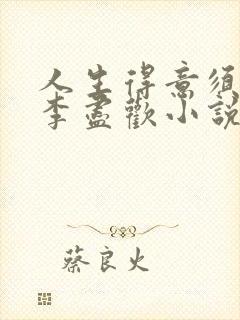 人生得意须
李盡歡小說
蔡良火